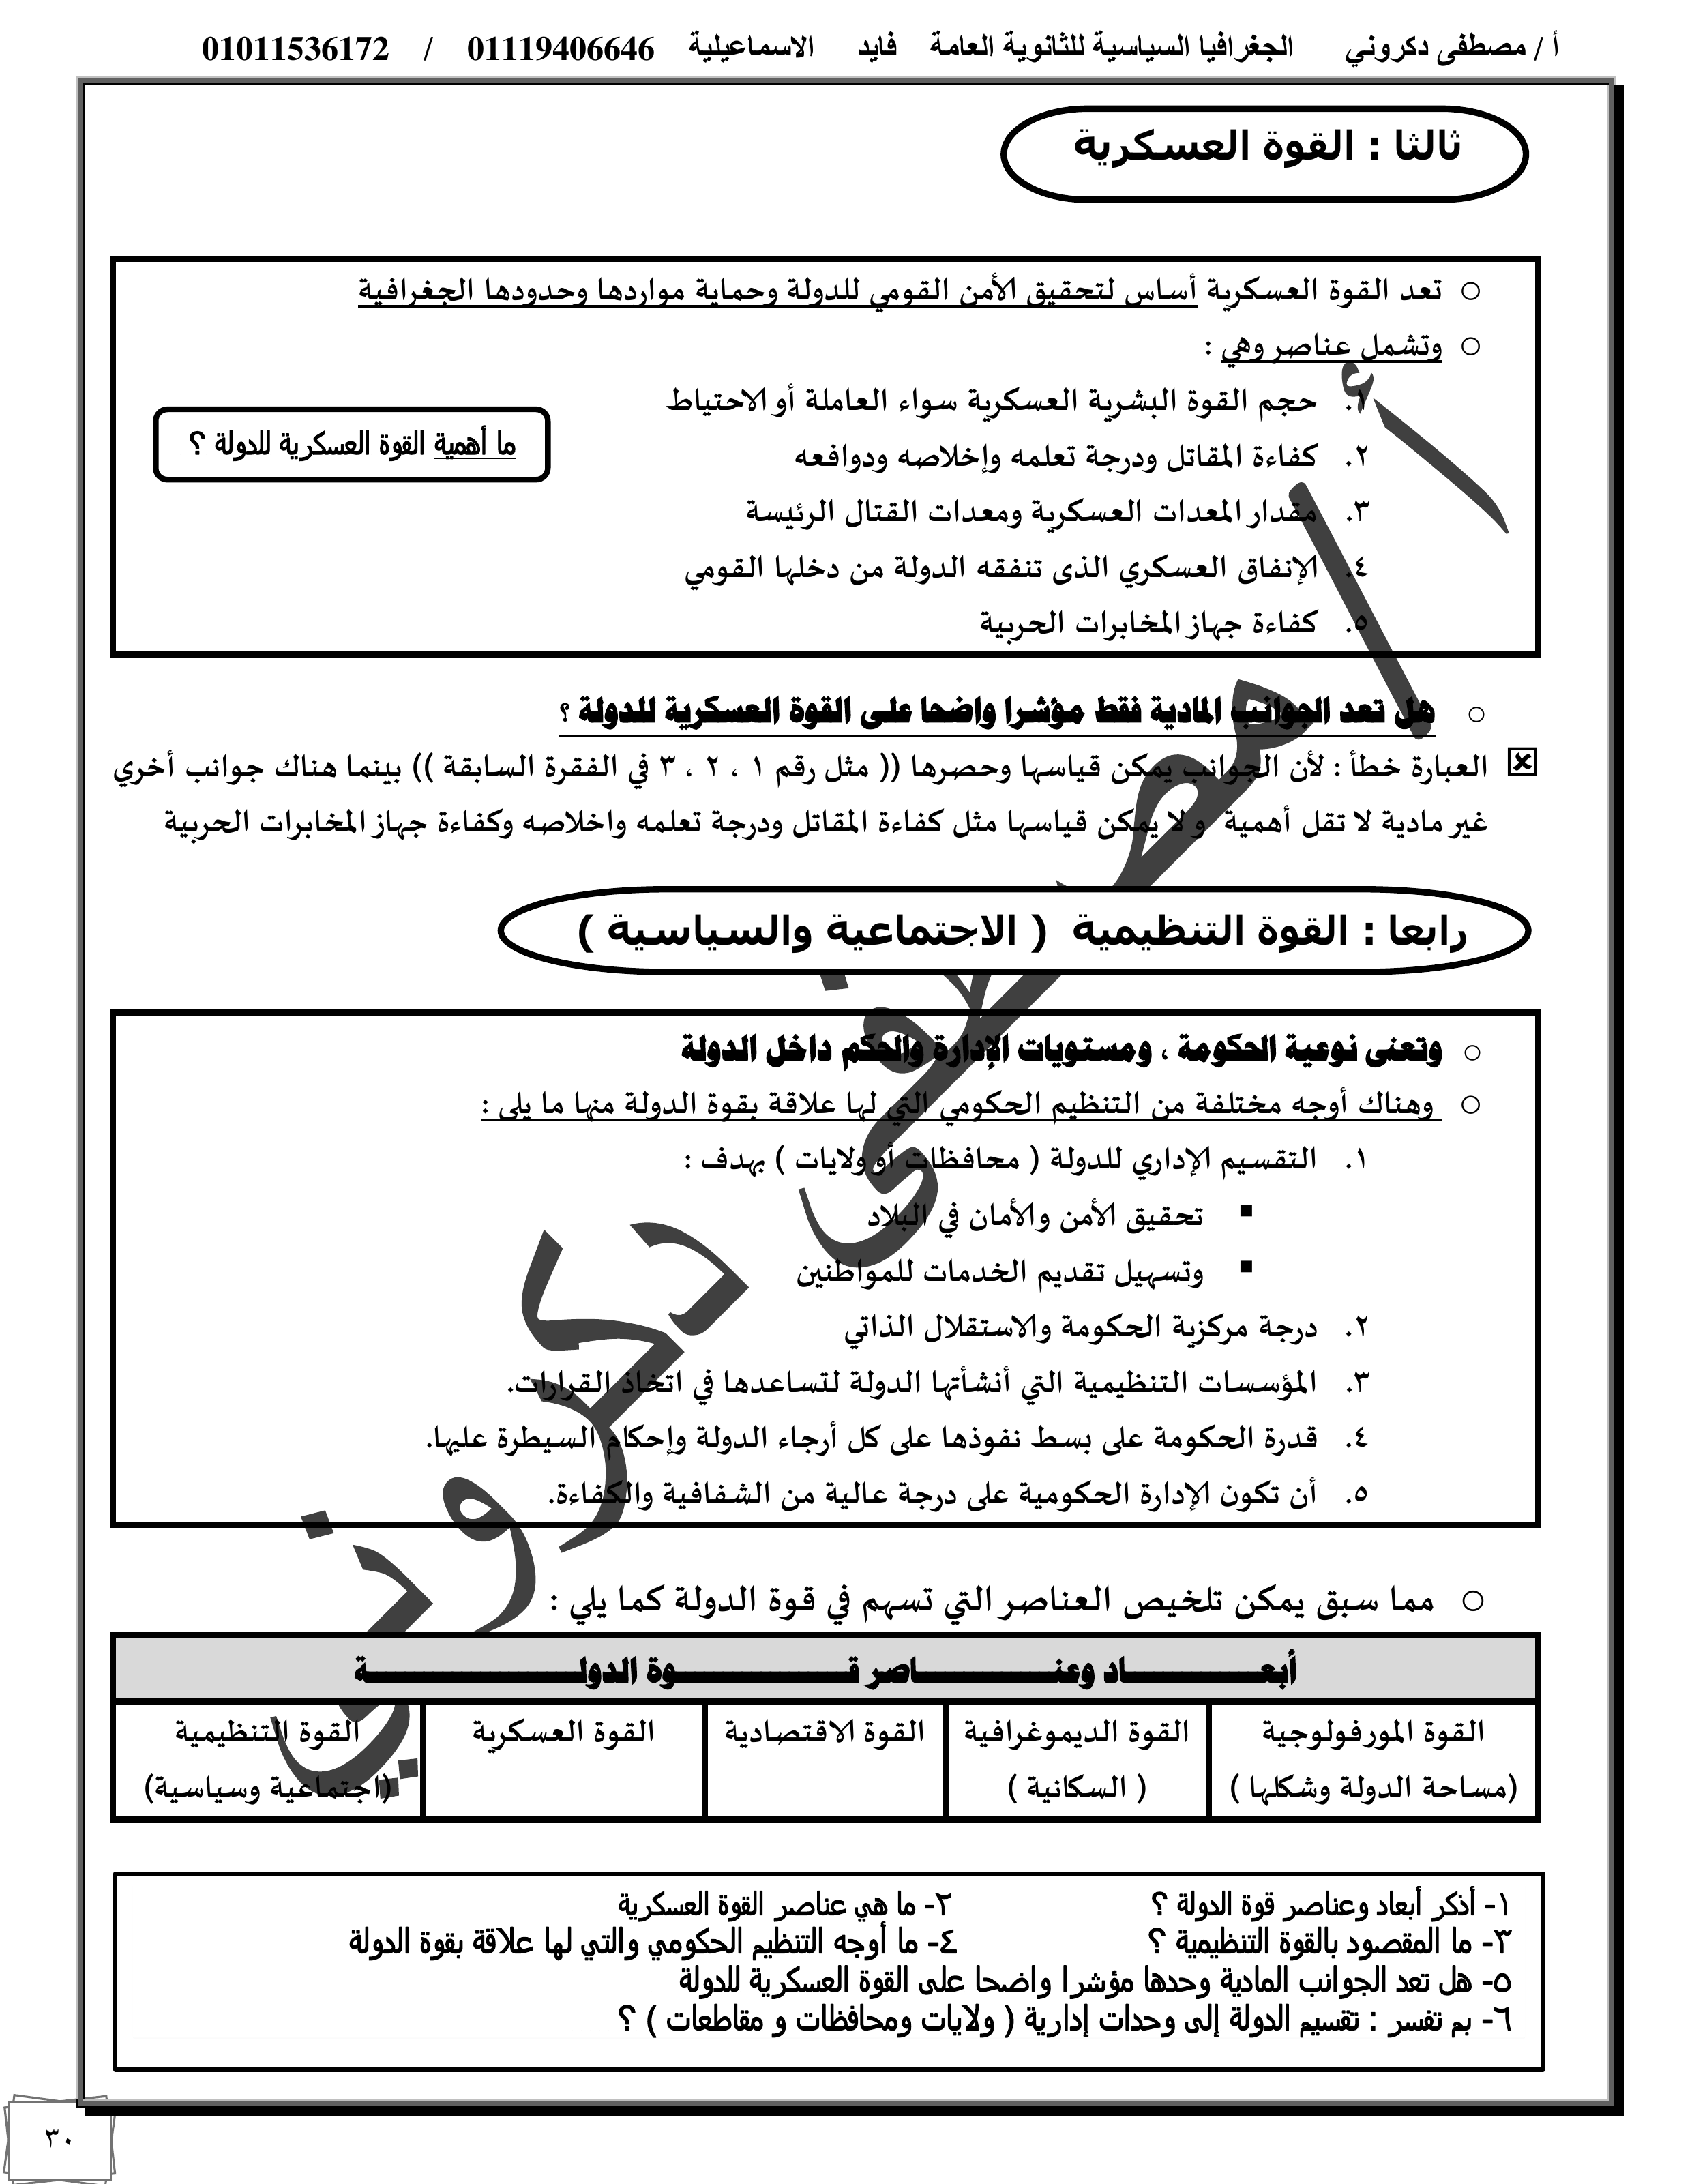 أ / مصطفى دكروني الجغرافيا السياسية للثانوية العامة فايد الاسماعيلية 01119406646 / 01011536172
ثالثا : القوة العسكرية
○ تعد القوة العسكرية أساس لتحقيق الأمن القومي للدولة وحماية مواردها وحدودها الجغرافية
○ وتشمل عناصر وهي :
١. حجم القوة البشرية العسكرية سواء العاملة أو الاحتياط
ما أهمية القوة العسكرية للدولة ؟
٢. كفاءة المقاتل ودرجة تعلمه وإخلاصه ودوافعه
٣. مقدار المعدات العسكرية ومعدات القتال الرئيسة
٤. الإنفاق العسكري الذى تنفقه الدولة من دخلها القومي
٥. كفاءة جهاز المخابرات الحربية
○ هل تعد الجوانب المادية فقط مؤشرا واضحا على القوة العسكرية للدولة ؟
العبارة خطأ : لأن الجوانب يمكن قياسها وحصرها (( مثل رقم ١ ، ٢ ، ٣ في الفقرة السابقة )) بينما هناك جوانب أخري
غير مادية لا تقل أهمية و لا يمكن قياسها مثل كفاءة المقاتل ودرجة تعلمه واخلاصه وكفاءة جهاز المخابرات الحربية
رابعا : القوة التنظيمية ( الاجتماعية والسياسية )
○ وتعنى نوعية الحكومة ، ومستويات الإدارة والحكم داخل الدولة
○ وهناك أوجه مختلفة من التنظيم الحكومي التي لها علاقة بقوة الدولة منها ما يلى :
١. التقسيم الإداري للدولة ( محافظات أو ولايات ) بهدف :
▪ تحقيق الأمن والأمان في البلاد
▪ وتسهيل تقديم الخدمات للمواطنين
٢. درجة مركزية الحكومة والاستقلال الذاتي
٣. المؤسسات التنظيمية التي أنشأتها الدولة لتساعدها في اتخاذ القرارات.
٤. قدرة الحكومة على بسط نفوذها على كل أرجاء الدولة وإحكام السيطرة عليها.
٥. أن تكون الإدارة الحكومية على درجة عالية من الشفافية والكفاءة.
○ مما سبق يمكن تلخيص العناصر التي تسهم في قوة الدولة كما يلي :
أبعـــــــــاد وعنـــــــــاصر قـــــــــوة الدولـــــــــة
القوة المورفولوجية القوة الديموغرافية القوة الاقتصادية القوة العسكرية القوة التنظيمية
(مساحة الدولة وشكلها ) ( السكانية ) (اجتماعية وسياسية)
١- أذكر أبعاد وعناصر قوة الدولة ؟ ٢- ما هي عناصر القوة العسكرية
٣- ما المقصود بالقوة التنظيمية ؟ ٤- ما أوجه التنظيم الحكومي والتي لها علاقة بقوة الدولة
٥- هل تعد الجوانب المادية وحدها مؤشرا واضحا على القوة العسكرية للدولة
٦- بم تفسر : تقسيم الدولة إلى وحدات إدارية ( ولايات ومحافظات و مقاطعات ) ؟
٣٠
أ / مصطفى دكروني